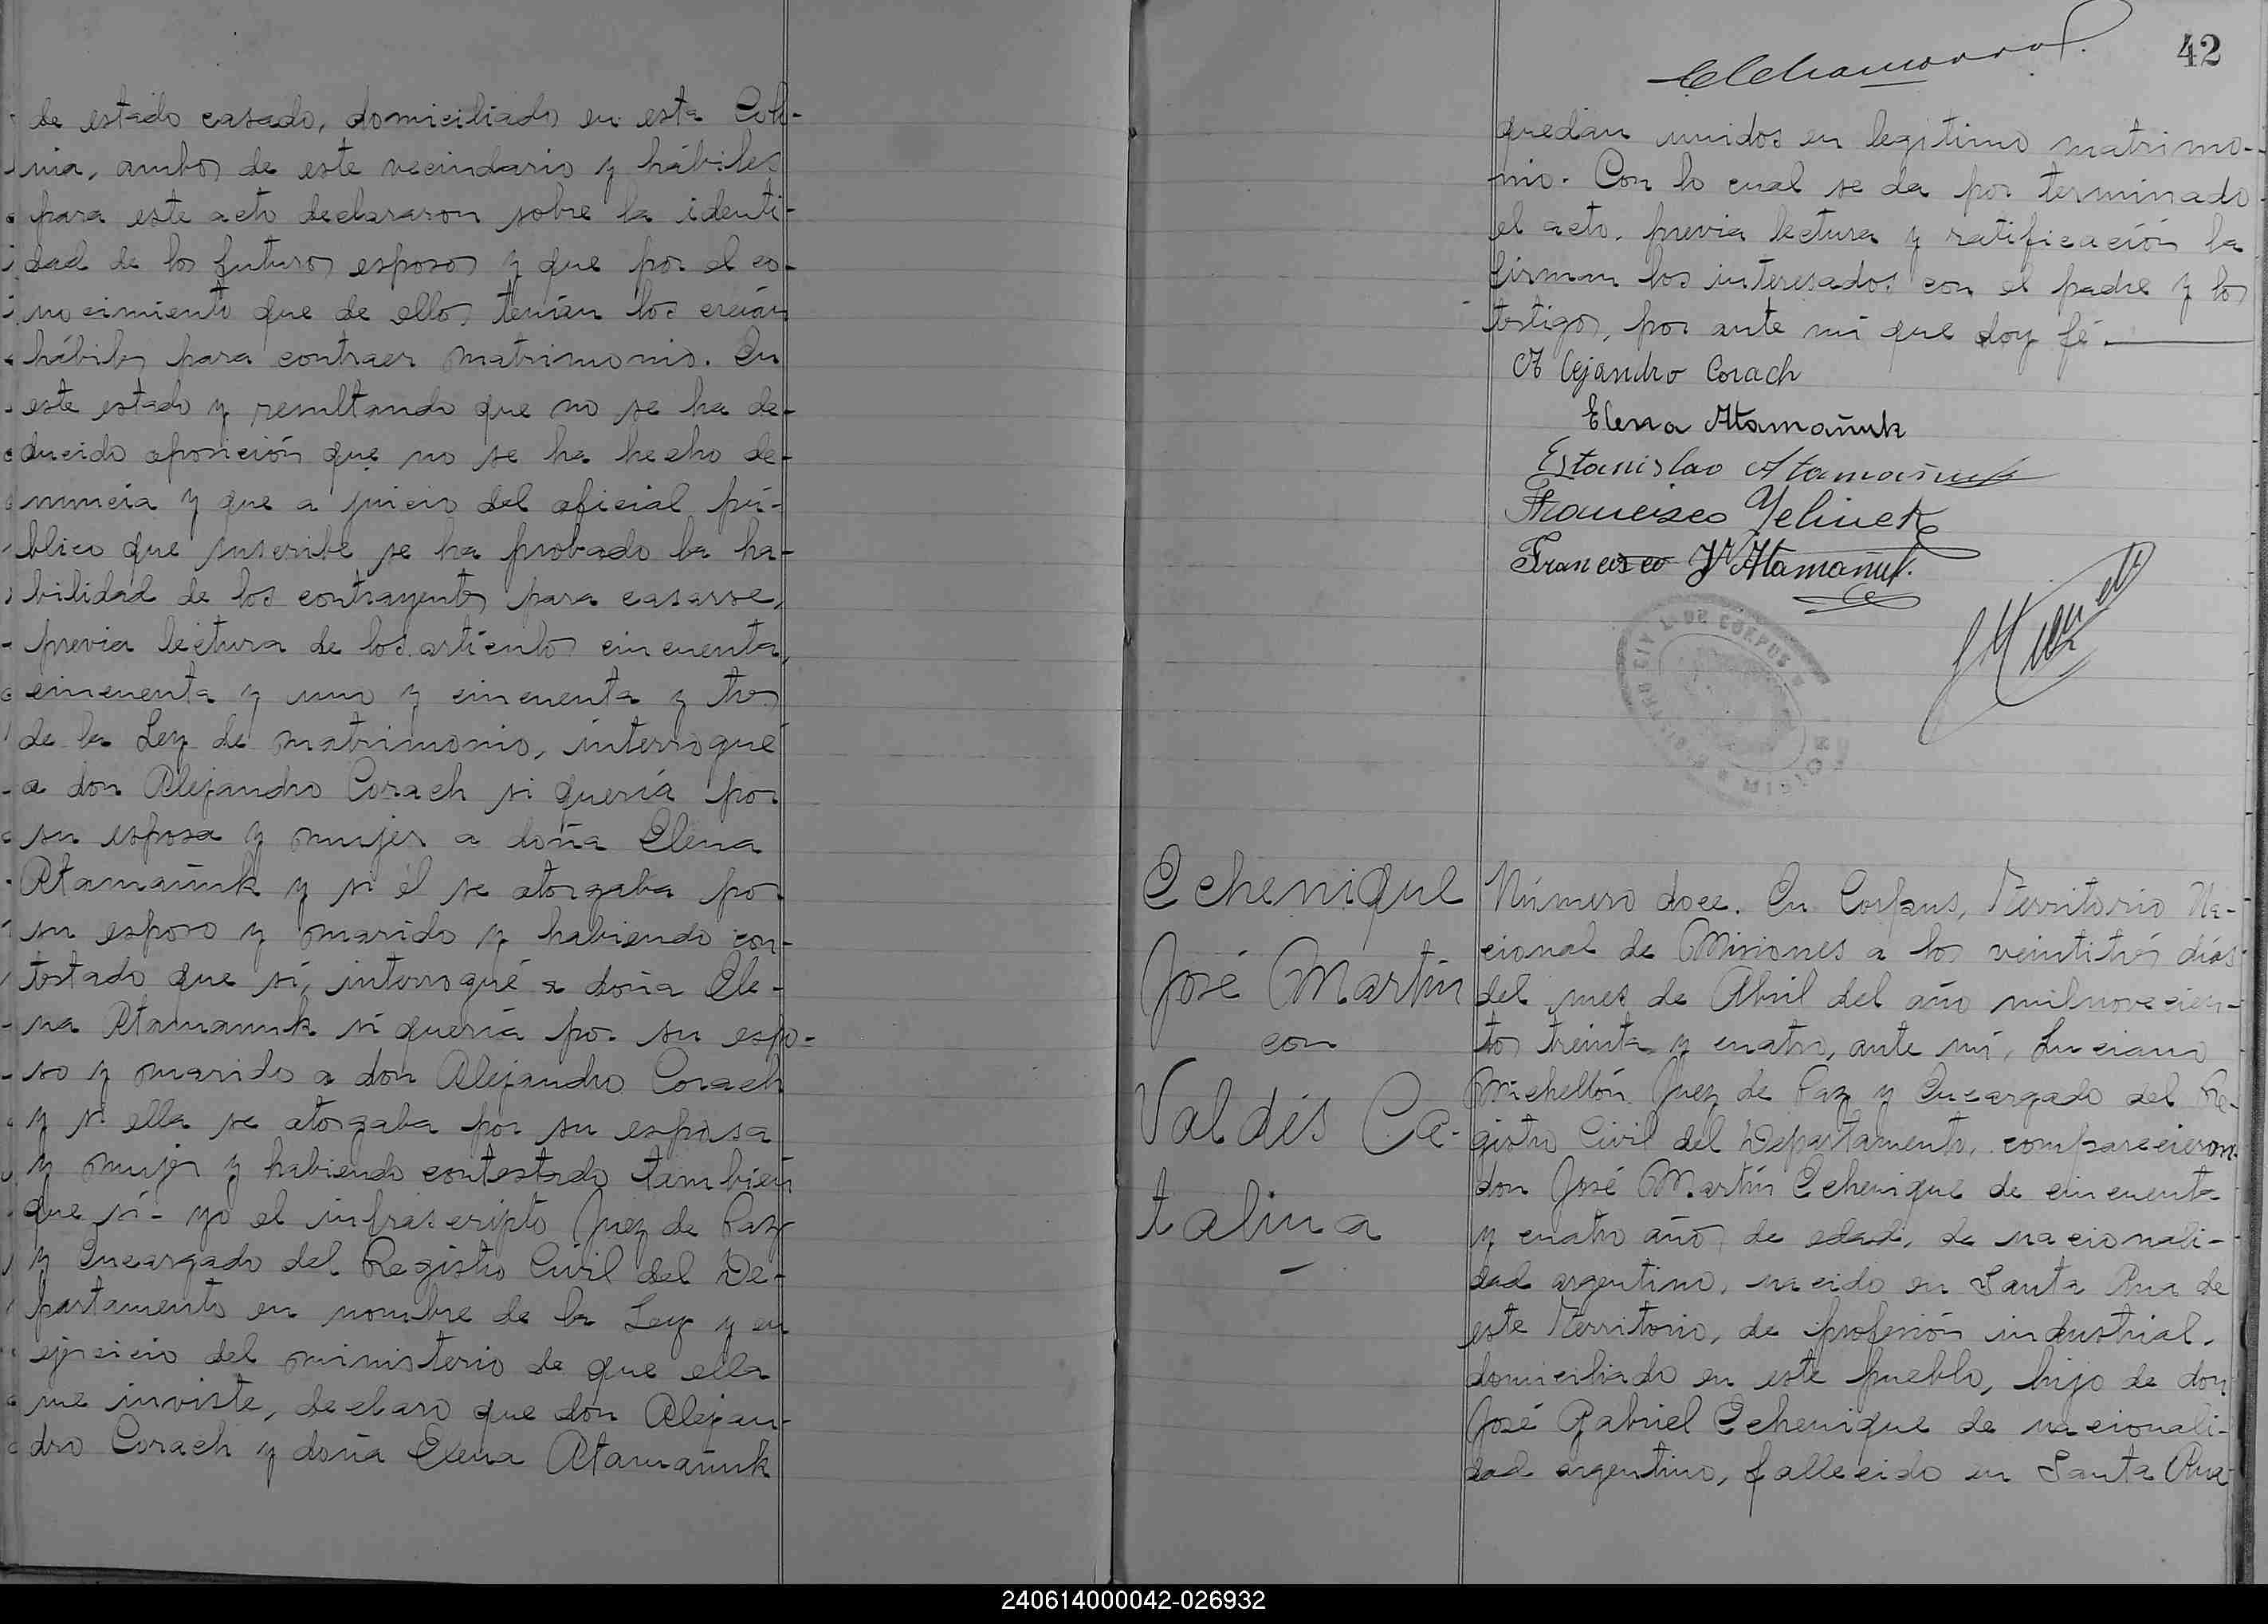 de estado casado, domiciliado en esta Colo-
nia, ambos de este vecindario y hábiles
para este acto declararon sobre la identi-
dad de los futuros esposos y que por el co-
nocimiento que de ellos tenían los creían
hábiles para contraer matrimonio. En
este estado y resultando que no se ha de-
ducido oposición que no se ha hecho de-
nuncia y que a juicio del oficial pú-
blico que suscribe se ha probado la ha-
bilidad de los contrayentes para casarse,
previa lectura de los artículos cincuenta,
cincuenta y uno y cincuenta y tres
de la Ley de matrimonio, interrogué
a don Alejandro Corach si quería por
su esposa y mujer a doña Elena
Atamañuk y si él se otorgaba por
su esposo y marido y habiendo con-
testado que sí, interrogué a doña Ele-
na Atamanuk si quería por su espo-
so y marido a don Alejandro Corach
y si ella se otorgaba por su esposa
y mujer y habiendo contestado también
que sí - yo el infrascripto Juez de Paz
y Encargado del Registro Civil del De-
partamento en nombre de la Ley y en
ejercicio del ministerio de que ella
me inviste, declaro que don Alejan-
dro Corach y doña Elena Atamañuk
42
quedan unidos en legítimo matrimo-
nio. Con lo cual se da por terminado
el acto, previa lectura y ratificación la
firman los interesados con el padre y los
testigos, por ante mí que doy fé.
Alejandro Corach
Elena Atamañuk
Estanislao Atamañuk
Francisco Yelinek
Francisco Atamañuk.
Echenique
José Martín
con
Valdés Ca-
talina
Número doce. En Corpus, Territorio Na-
cional de Misiones a los veintitrés días
del mes de Abril del año milnovecien-
tos treinta y cuatro, ante mí, Luciano
Michellón Juez de Paz y Encargado del Re-
gistro Civil del Departamento, comparecieron
don José Martín Echenique de cincuenta
y cuatro años de edad, de nacionali-
dad argentino, nacido en Santa Ana de
este Territorio, de profesión industrial,
domiciliado en este pueblo, hijo de don
José Gabriel Echenique de nacionali-
dad argentino, fallecido en Santa Ana
240614000042-026932